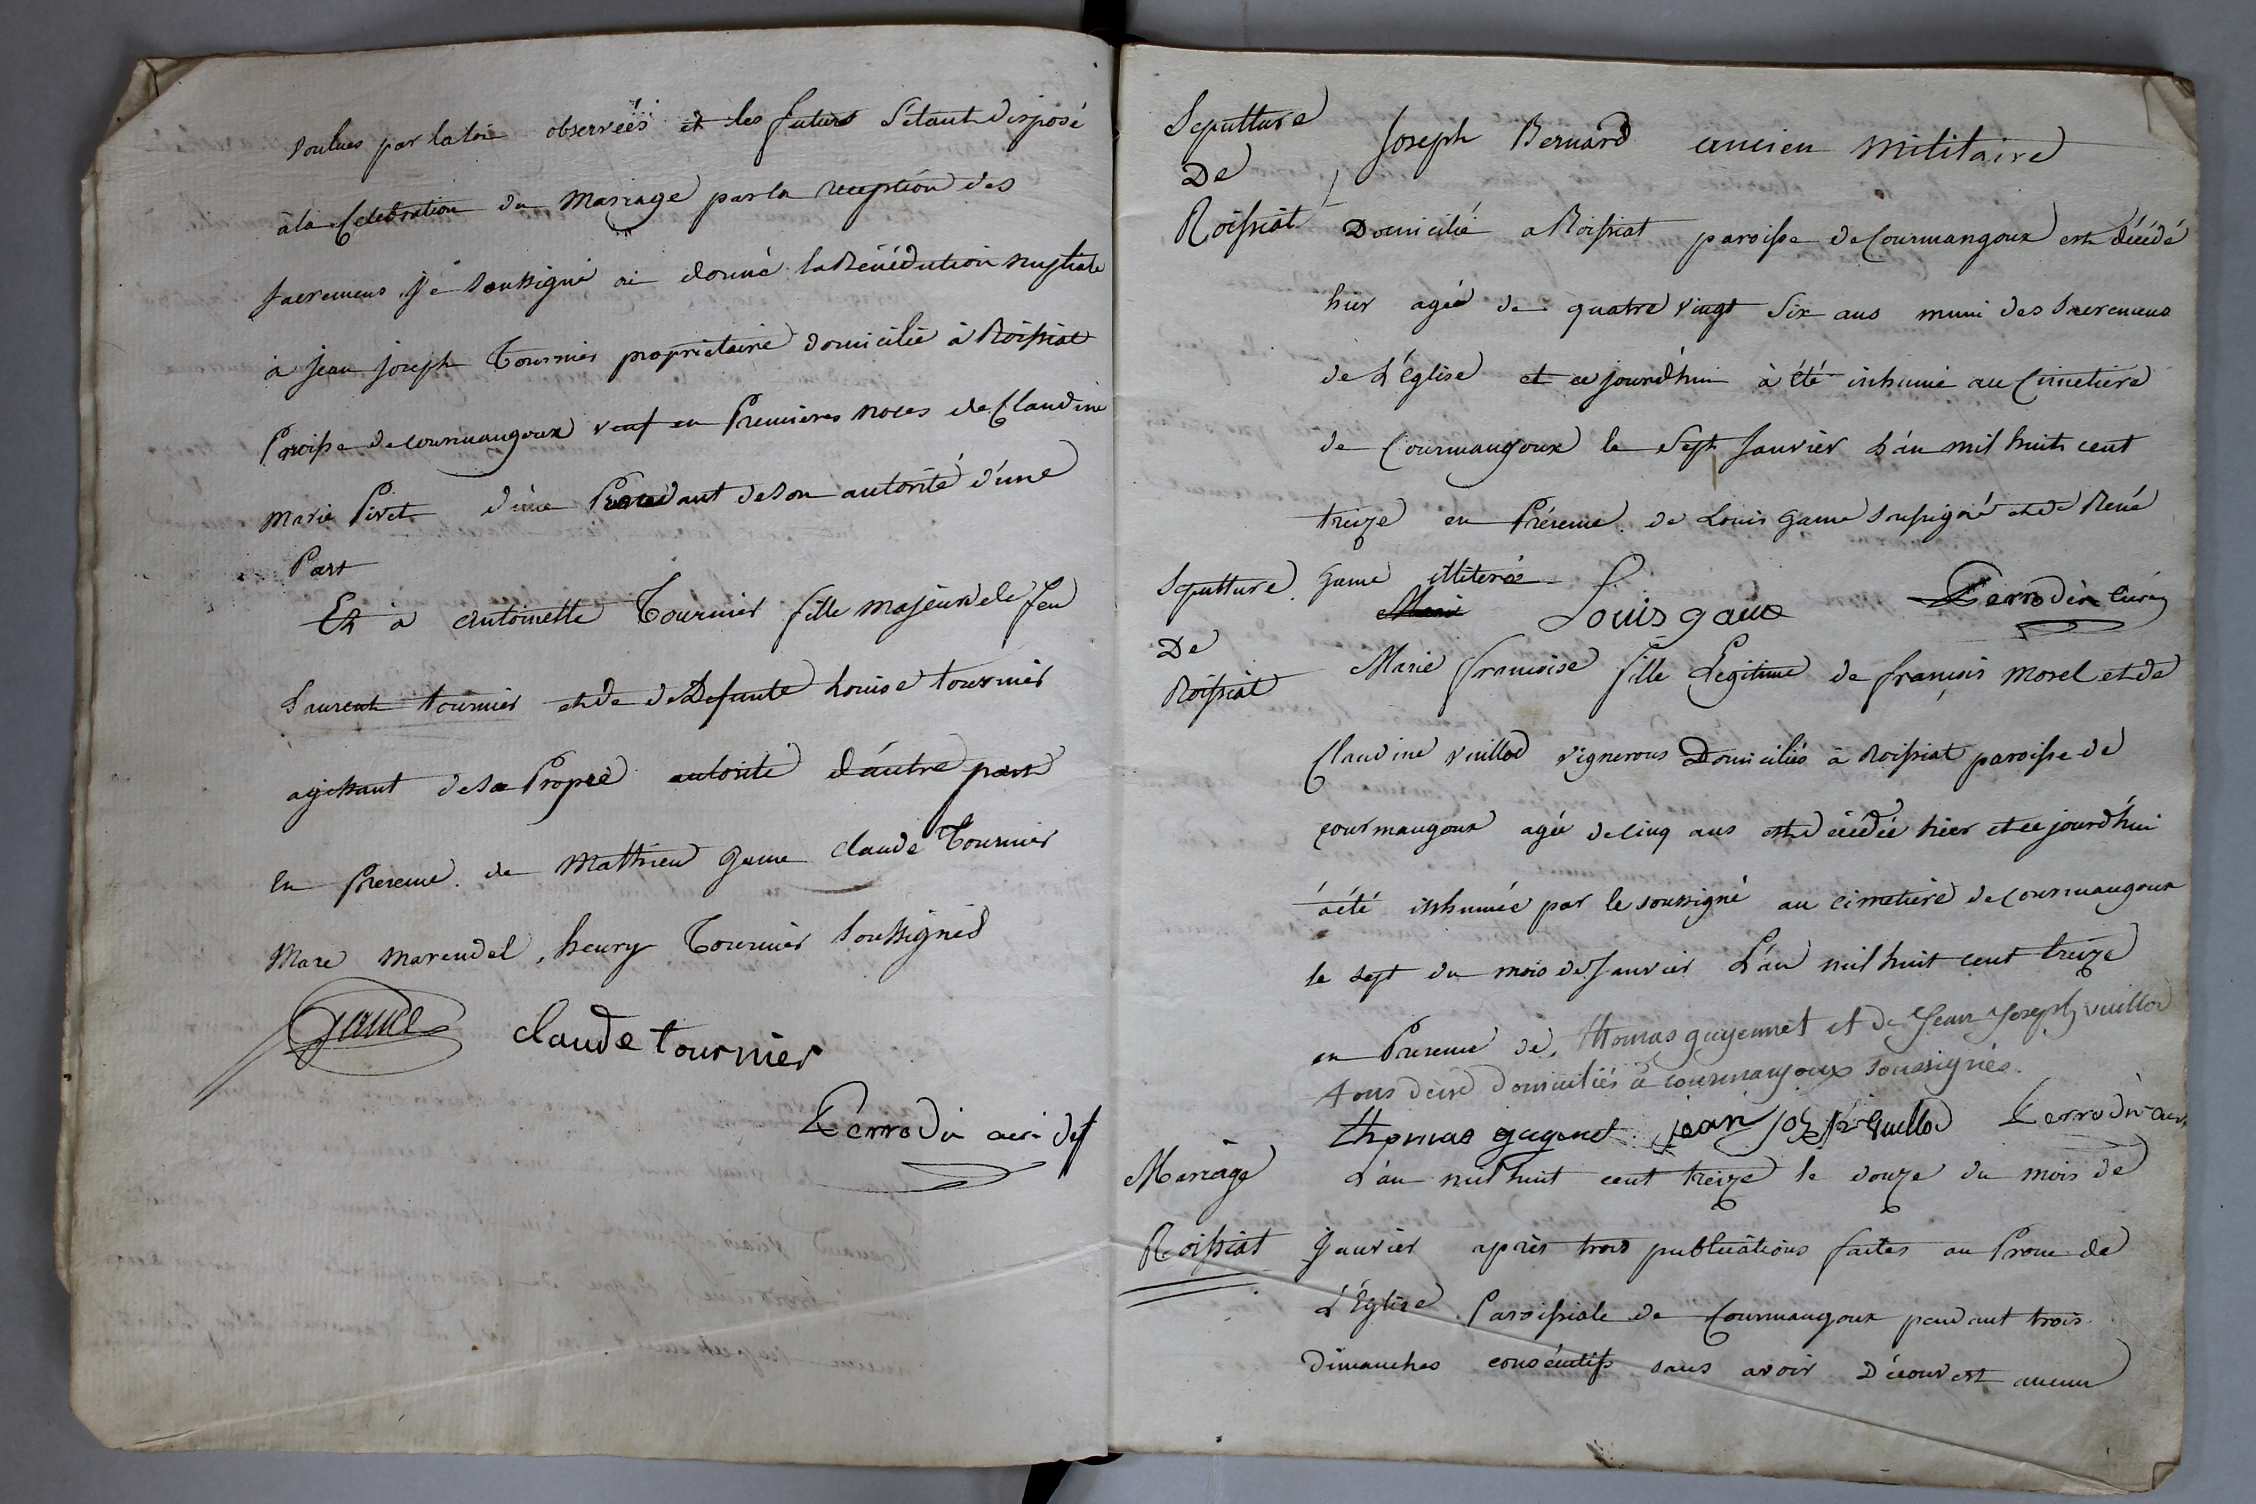 voulues par la loi observées et les futurs s'étant disposé
à la Celebration du Mariage par la reception des
sacremens je soussigné ai donné la Bénédiction nuptiale
à jean joseph Tournier propriétaire domicilié à Roissiat
Paroisse de courmangoux veuf en Premières noces de Claudine
Marie Piret d'une Part de son autorité d'une
Part
Et à antoinette Tournier fille majeure de feu
Laurent tournier et de Defunte Louise tournier
agissant de sa Propre autorité d'autre part
en presence de Matthieu game claude Tournier
Marc marendel, henry Tournier soussignés
Game claude tournier
Perrodin curé
Sepulture
De
Roissiat
Joseph Bernard ancien militaire
Domicilié a Roissiat paroisse de Courmangoux est décédé
hier agé de quatre vingt six ans muni des sacremens
de L'Eglise et ce jourd'hui à été inhumé au Cimetiere
de Courmangoux le sept Janvier L'an mil huit cent
treize en Présence de Louis game soussigné et de René
game illiteré
Louis game Perrodin Curé
Sepulture
De
Roissiat
Marie francoise fille Legitime de françois morel et de
Claudine vuillod vignerons Domiciliés à Roissiat paroisse de
courmangoux agée de cinq ans est décédée hier et ce jourd'hui
à été inhumée par le soussigné au cimetiere de Courmangoux
le sept du mois de Janvier L'an mil huit cent treize
en Presence de, thomas guyennet et de Jean Joseph vuillod
tous deux domiciliés à courmangoux soussignés.
thomas guyenet jean joseph vuillod Perrodin curé
Mariage
Roissiat
L'an mil huit cent treize le douze du mois de
Janvier après trois publications faites au Prone de
L'Eglise Paroissiale de Courmangoux pendant trois
dimanches consécutifs sans avoir Découvert aucun